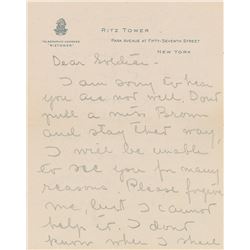 RITZ TOWER
PARK AVENUE AT FIFTY-SEVENTH STREET
NEW YORK
TELEGRAPHIC ADDRESS
"RIZTOWER"
Dear Soldier:-
I am sorry to hear
you are not well. Dont
pull a miss Brown
and stay that way.
I will be unable
to see you for many
reasons. Please forgive
me, but I cannot
help it. I dont
know when I shall